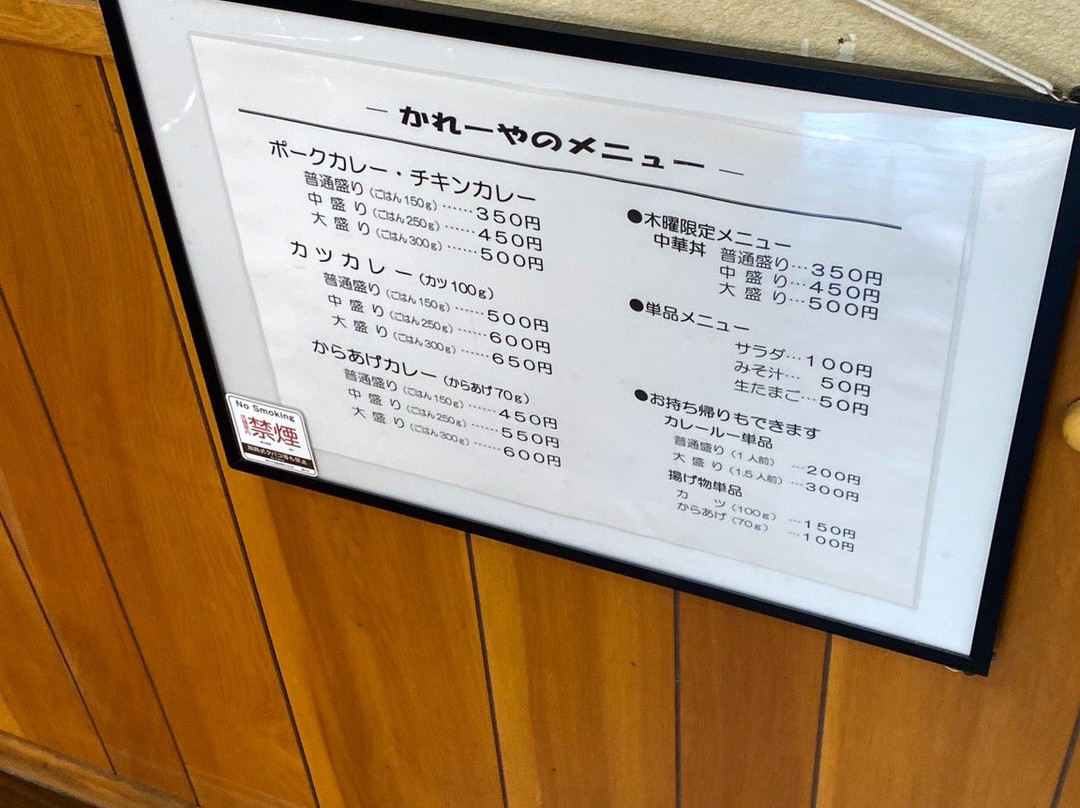 — かれーやのメニュー —
ポークカレー・チキンカレー
普通盛り(ごはん150g)……350円
中盛り(ごはん250g)……450円
大盛り(ごはん300g)……500円
カツカレー(カツ100g)
普通盛り(ごはん150g)……500円
中盛り(ごはん250g)……600円
大盛り(ごはん300g)……650円
からあげカレー(からあげ70g)
普通盛り(ごはん150g)……450円
中盛り(ごはん250g)……550円
大盛り(ごはん300g)……600円
●木曜限定メニュー
中華丼 普通盛り…350円
中盛り…450円
大盛り…500円
●単品メニュー
サラダ…100円
みそ汁… 50円
生たまご…50円
●お持ち帰りもできます
カレールー単品
普通盛り(1人前) …200円
大盛り(1.5人前)…300円
揚げ物単品
カツ(100g) …150円
からあげ(70g) …100円
No Smoking
禁煙
加熱式タバコ等も禁止